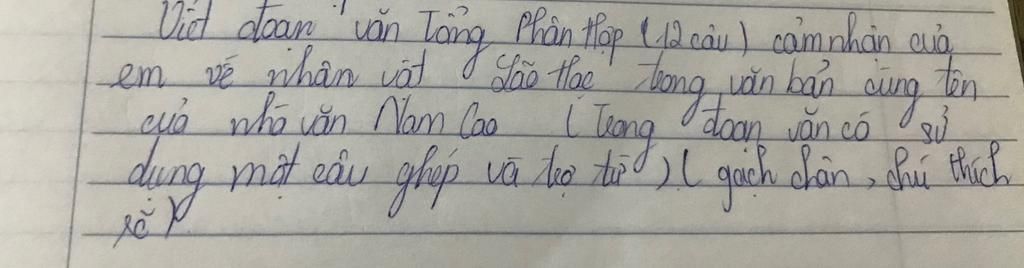 Viết đoạn văn Tổng Phân Hợp (12 câu) cảm nhận của
em về nhân vật Lão Hạc trong văn bản cùng tên
của nhà văn Nam Cao (Trong đoạn văn có sử
dụng một câu ghép và trợ từ) (gạch chân, chú thích
rõ)